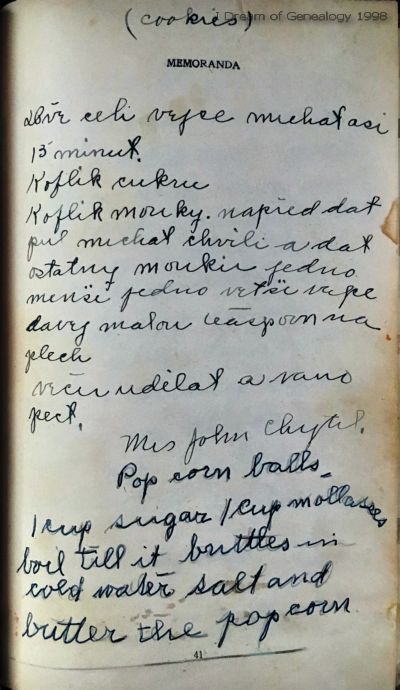 (cookies)
I Dream of Genealogy 1998
MEMORANDA
Dvě celi vejce michat asi
15 minut.
Koflik cukru
Koflik mouky. napřed dat
pul michat chvili a dat
ostatny mouku jedno
menši jedno vetši vejce
davej malou teaspoon na
plech
večer udělat a rano
pect.
Mrs John Chytil.
Pop corn balls.
1 cup sugar 1 cup mollasses
boil till it brittles in
cold water salt and
butter the pop corn
41